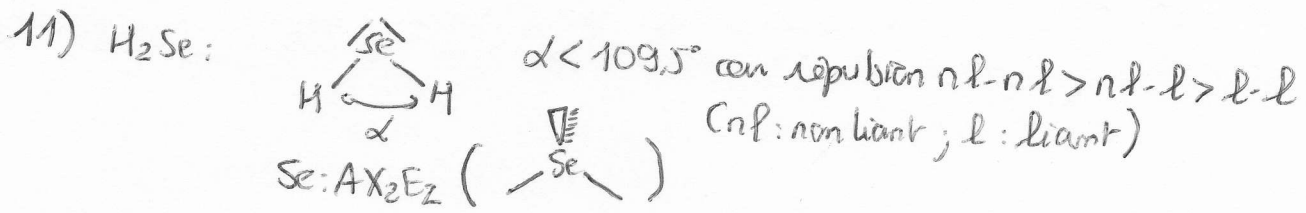 11) H₂Se:
Se
H H
α
α < 109,5° car répulsion nl-nl > nl-l > l-l
(nl: non liant ; l : liant)
Se: AX₂E₂ ( Se )